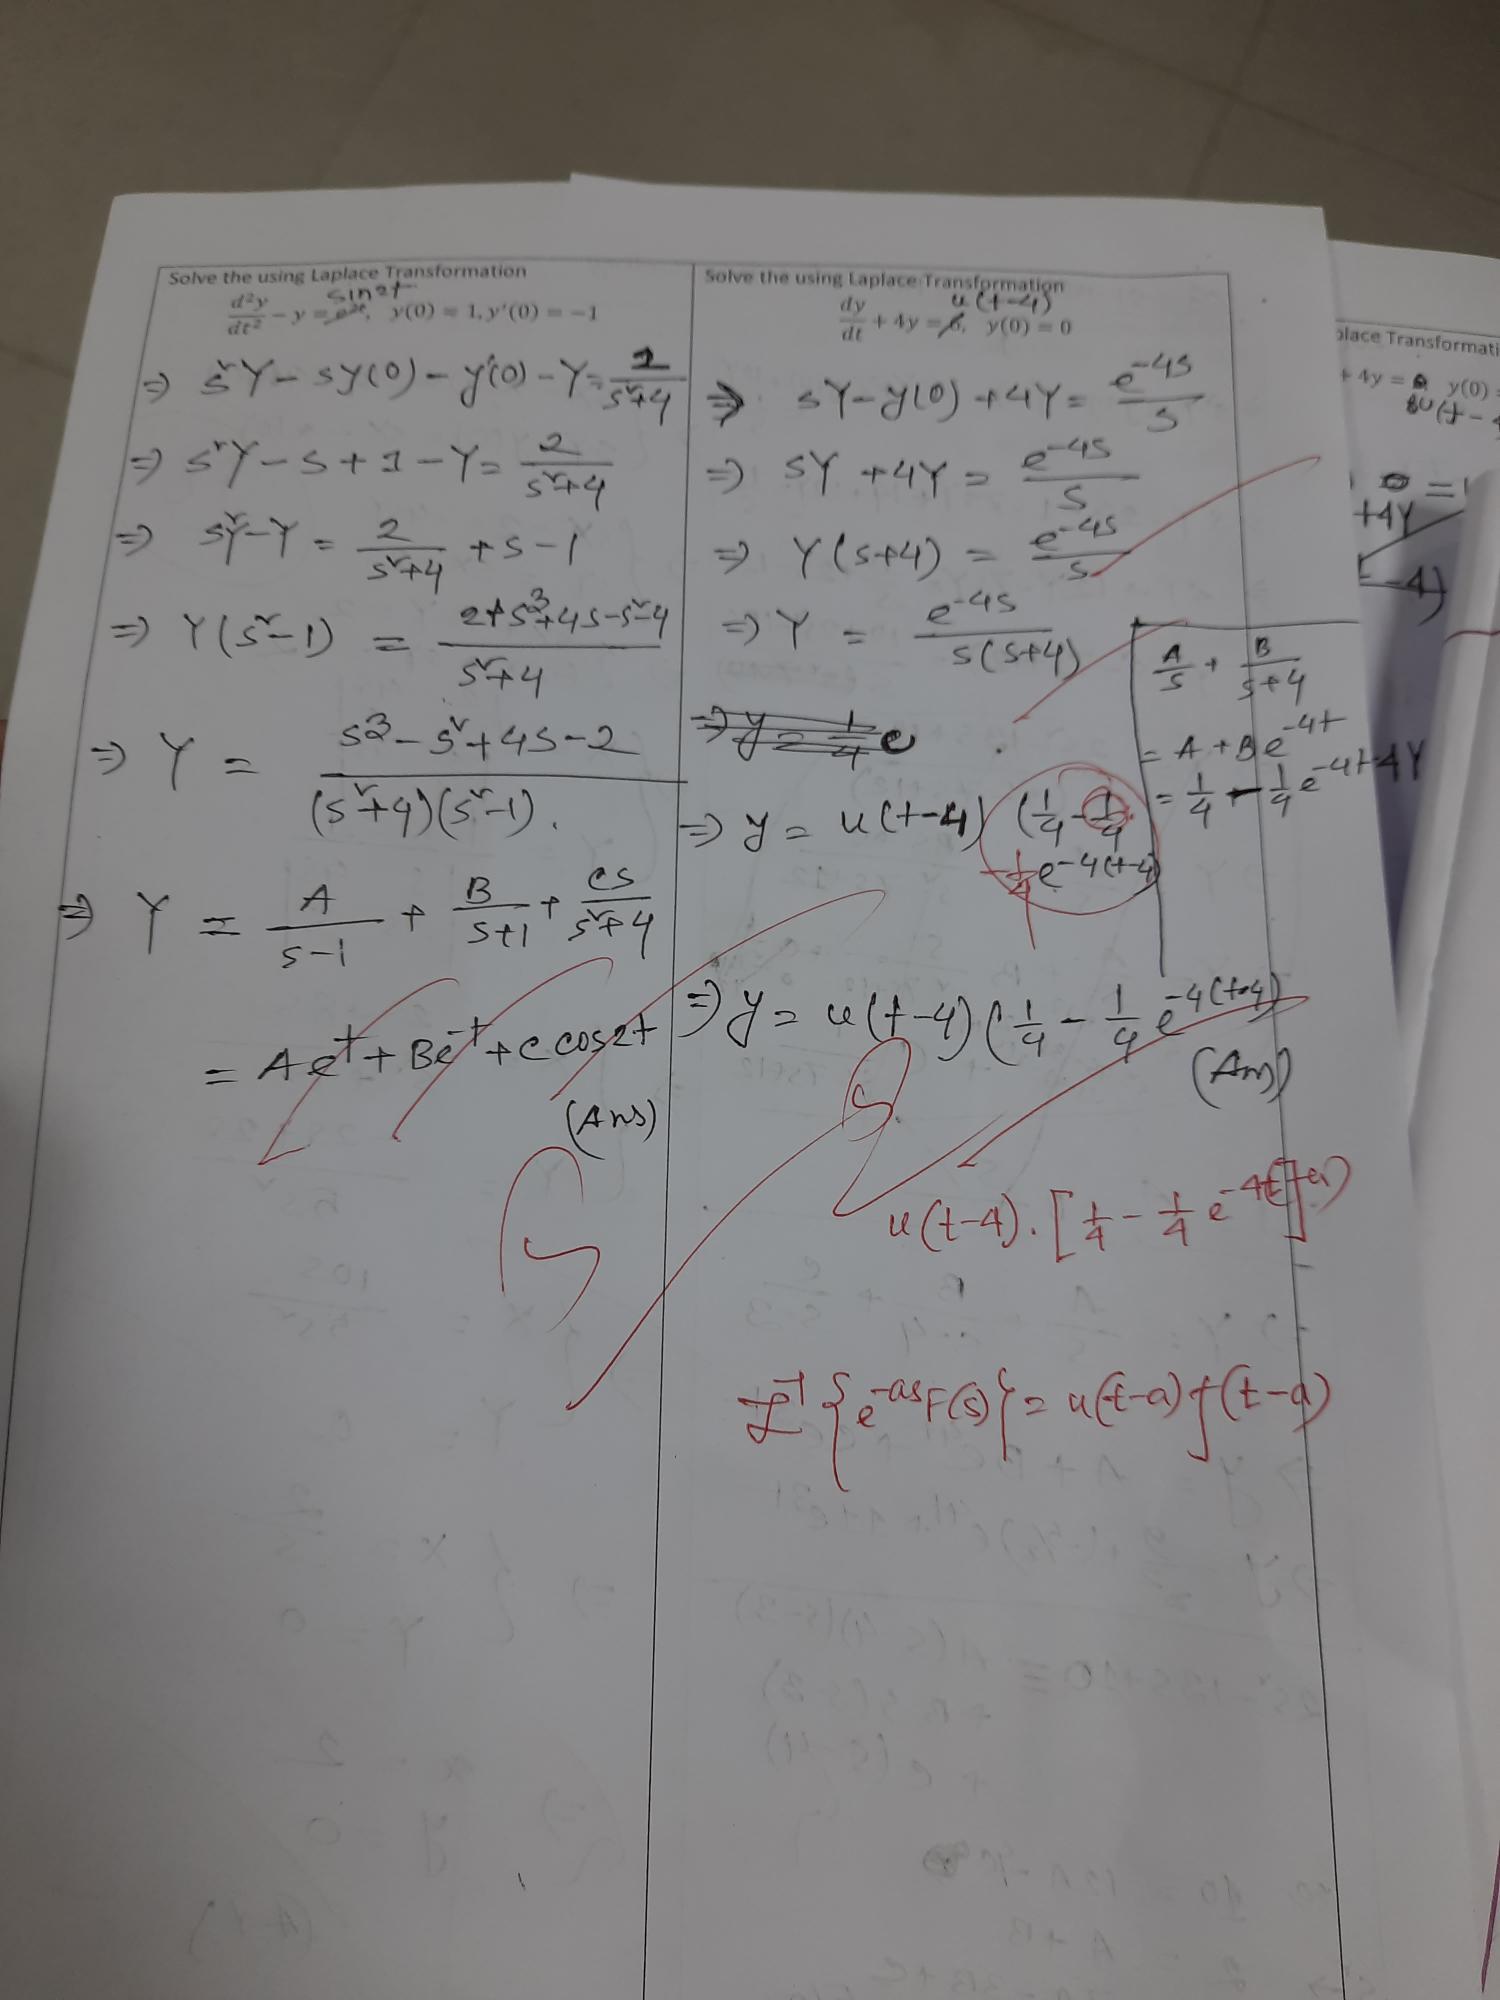 Solve the using Laplace Transformation
sin2t
d²y/dt² - y = e²ᵗ, y(0) = 1, y'(0) = -1
⇒ s²Y - sy(0) - y'(0) - Y = 2/(s²+4)
⇒ s²Y - s + 1 - Y = 2/(s²+4)
⇒ s²Y - Y = 2/(s²+4) + s - 1
⇒ Y(s²-1) = (2+s³+4s-s²-4)/(s²+4)
⇒ Y = (s³-s²+4s-2)/((s²+4)(s²-1)).
⇒ Y = A/(s-1) + B/(s+1) + cs/(s²+4)
= Ae^t + Be^-t + c cos2t
(Ans)
Solve the using Laplace Transformation
u(t-4)
dy/dt + 4y = 6, y(0) = 0
⇒ sY - y(0) + 4Y = e^-4s/s
⇒ sY + 4Y = e^-4s/s
⇒ Y(s+4) = e^-4s/s
⇒ Y = e^-4s/(s(s+4))
A/s + B/(s+4)
= A + Be^-4t
= 1/4 - 1/4 e^-4t
⇒ y = 1/4 e
⇒ y = u(t-4) (1/4 - 1/4
- 1/4 e^-4(t-4)
⇒ y = u(t-4) (1/4 - 1/4 e^-4(t-4))
(Ans)
u(t-4). [1/4 - 1/4 e^-4(t-4)]
L⁻¹{e^-as F(s)} = u(t-a) f(t-a)
place Transformati
+ 4y = y(0) =
8u(t-4
+4Y
-4)
4Y